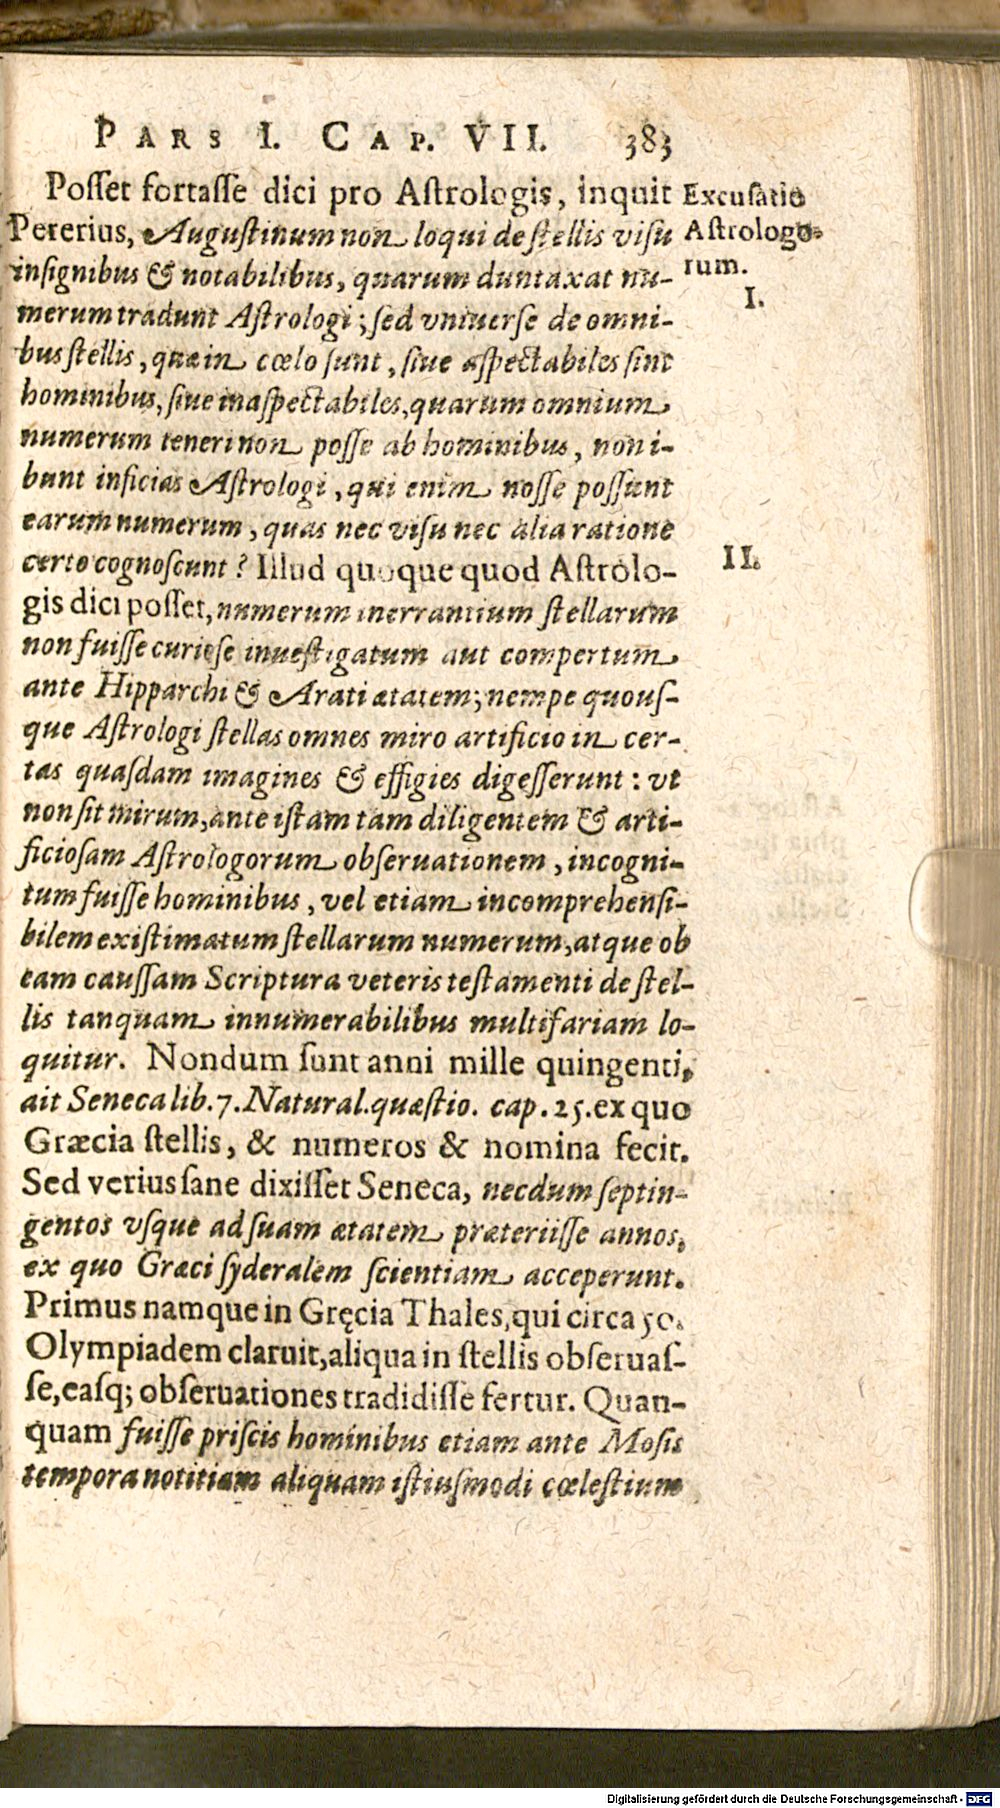 PARS I. CAP. VII. 383
Posset fortasse dici pro Astrologis, inquit
Pererius, Augustinum non loqui de stellis visu
insignibus & notabilibus, quarum duntaxat nu-
merum tradunt Astrologi; sed vniuerse de omni-
bus stellis, quæ in cœlo sunt, siue aspectabiles sint
hominibus, siue inaspectabiles, quarum omnium
numerum teneri non posse ab hominibus, non i-
bunt inficias Astrologi, qui enim nosse possunt
earum numerum, quas nec visu nec alia ratione
certo cognoscunt? Illud quoque quod Astrolo-
gis dici posset, numerum inerrantium stellarum
non fuisse curiose inuestigatum aut compertum
ante Hipparchi & Arati ætatem; nempe quous-
que Astrologi stellas omnes miro artificio in cer-
tas quasdam imagines & effigies digesserunt: vt
non sit mirum, ante istam tam diligentem & arti-
ficiosam Astrologorum obseruationem, incogni-
tum fuisse hominibus, vel etiam incomprehensi-
bilem existimatum stellarum numerum, atque ob
eam caussam Scriptura veteris testamenti de stel-
lis tanquam innumerabilibus multifariam lo-
quitur. Nondum sunt anni mille quingenti,
ait Seneca lib. 7. Natural. quæstio. cap. 25. ex quo
Græcia stellis, & numeros & nomina fecit.
Sed verius sane dixisset Seneca, necdum septin-
gentos vsque ad suam ætatem præteriisse annos,
ex quo Græci syderalem scientiam acceperunt.
Primus namque in Gręcia Thales, qui circa 50.
Olympiadem claruit, aliqua in stellis obseruas-
se, easq; obseruationes tradidisse fertur. Quan-
quam fuisse priscis hominibus etiam ante Mosis
tempora notitiam aliquam istiusmodi cœlestium
Excusatio
Astrologo-
rum.
I.
II.
Digitalisierung gefördert durch die Deutsche Forschungsgemeinschaft - DFG